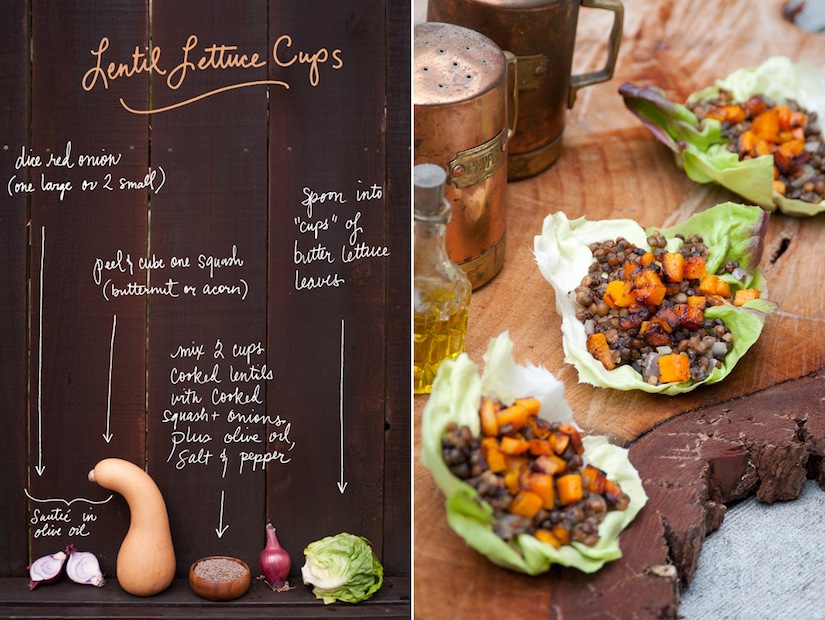 Lentil Lettuce Cups
dice red onion
(one large or 2 small)
peel & cube one squash
(butternut or acorn)
Spoon into
"cups" of
butter lettuce
leaves
mix 2 cups
cooked lentils
with cooked
squash + onions
plus olive oil,
salt & pepper
Sauté in
olive oil